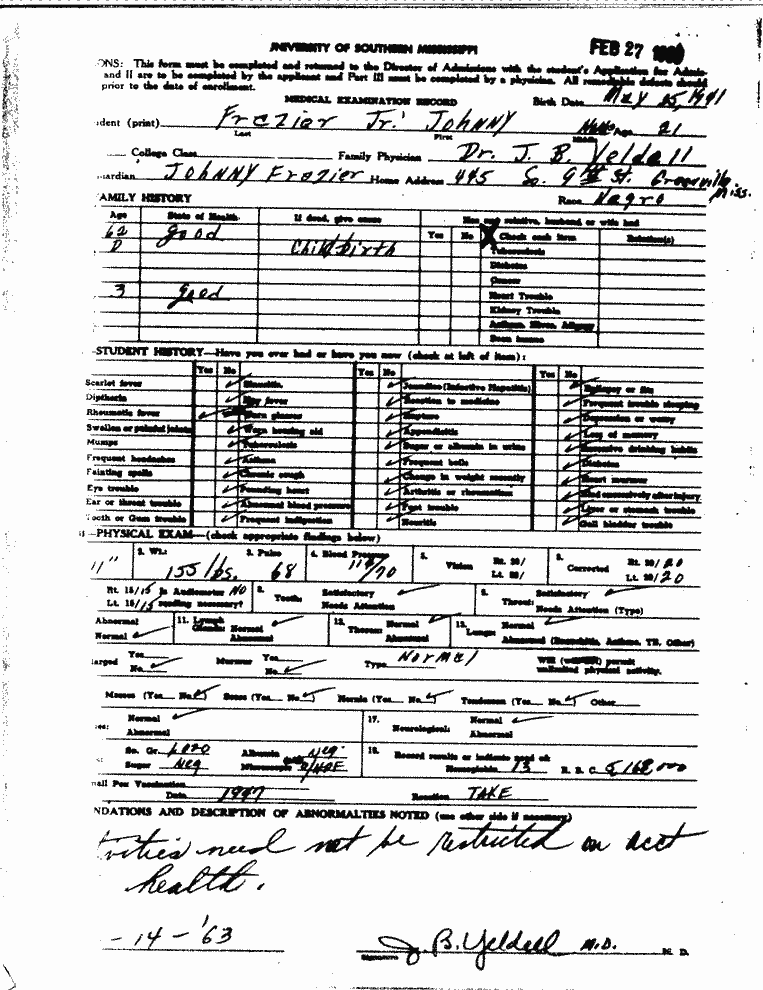 UNIVERSITY OF SOUTHERN MISSISSIPPI
FEB 27
ONS: This form must be completed and returned to the Director of Admissions with the student's Application for Admis-
and II are to be completed by the applicant and Part III must be completed by a physician. All remediable defects should
prior to the date of enrollment.
MEDICAL EXAMINATION RECORD Birth Date May 25, 1941
udent (print) Frazier Jr. Johnny Age 21
Last First
College Class Family Physician Dr. J. B. Yeldell
uardian Johnny Frazier Home Address 445 So. 9th St. Greenville Miss.
Race Negro
FAMILY HISTORY
Age State of Health If dead, give cause Has any relative, husband or wife had
62 good Yes No X Check each item Relation(s)
D Childbirth Tuberculosis
Diabetes
Cancer
3 good Heart Trouble
Kidney Trouble
Asthma, Hives, Allergy
Been insane
STUDENT HISTORY—Have you ever had or have you now (check at left of item):
Yes No Yes No Yes No
Scarlet fever Sinusitis Jaundice (Infective Hepatitis) Epilepsy or fits
Diptheria Hay fever Reaction to medicine Frequent trouble sleeping
Rheumatic fever Worn glasses Rupture Depression or worry
Swollen or painful joints Worn hearing aid Appendicitis Loss of memory
Mumps Tuberculosis Sugar or albumin in urine Excessive drinking habits
Frequent headaches Asthma Frequent boils Diabetes
Fainting spells Chronic cough Change in weight recently Heart murmur
Eye trouble Pounding heart Arthritis or rheumatism Bled excessively after injury
Ear or throat trouble Abnormal blood pressure Foot trouble Liver or stomach trouble
Tooth or Gum trouble Frequent indigestion Neuritis Gall bladder trouble
—PHYSICAL EXAM—(check appropriate findings below)
11" 2. Wt.: 155 lbs. 3. Pulse 68 4. Blood Pressure /70 5. Vision Rt. 20/ Lt. 20/ 6. Corrected Rt. 20/20 Lt. 20/20
Rt. 15/15 Is Audiometer NO 8. Teeth: Satisfactory 9. Throat: Satisfactory
Lt. 15/15 reading necessary? Needs Attention Needs Attention (Type)
Abnormal 11. Lymph Glands: Normal 12. Thorax: Normal 13. Lungs: Normal
Normal Abnormal Abnormal Abnormal (Bronchitis, Asthma, TB, Other)
larged Yes Murmur Yes Type Normal Will (will not) permit
No No unlimited physical activity.
Masses (Yes No) Scars (Yes No) Hernia (Yes No) Tenderness (Yes No) Other
Normal 17. Neurological: Normal
Abnormal Abnormal
Sp. Gr. 1.020 Albumin Neg. 18. Record results or indicate need of:
Sugar Neg Microscopic Hemoglobin 13 R. B. C.
mall Pox Vaccination Date 1947 Reaction TAKE
NDATIONS AND DESCRIPTION OF ABNORMALTIES NOTED (use other side if necessary)
tivities need not be restricted on acct
health.
- 14 - '63 J. B. Yeldell M.D. M. D.
Signature